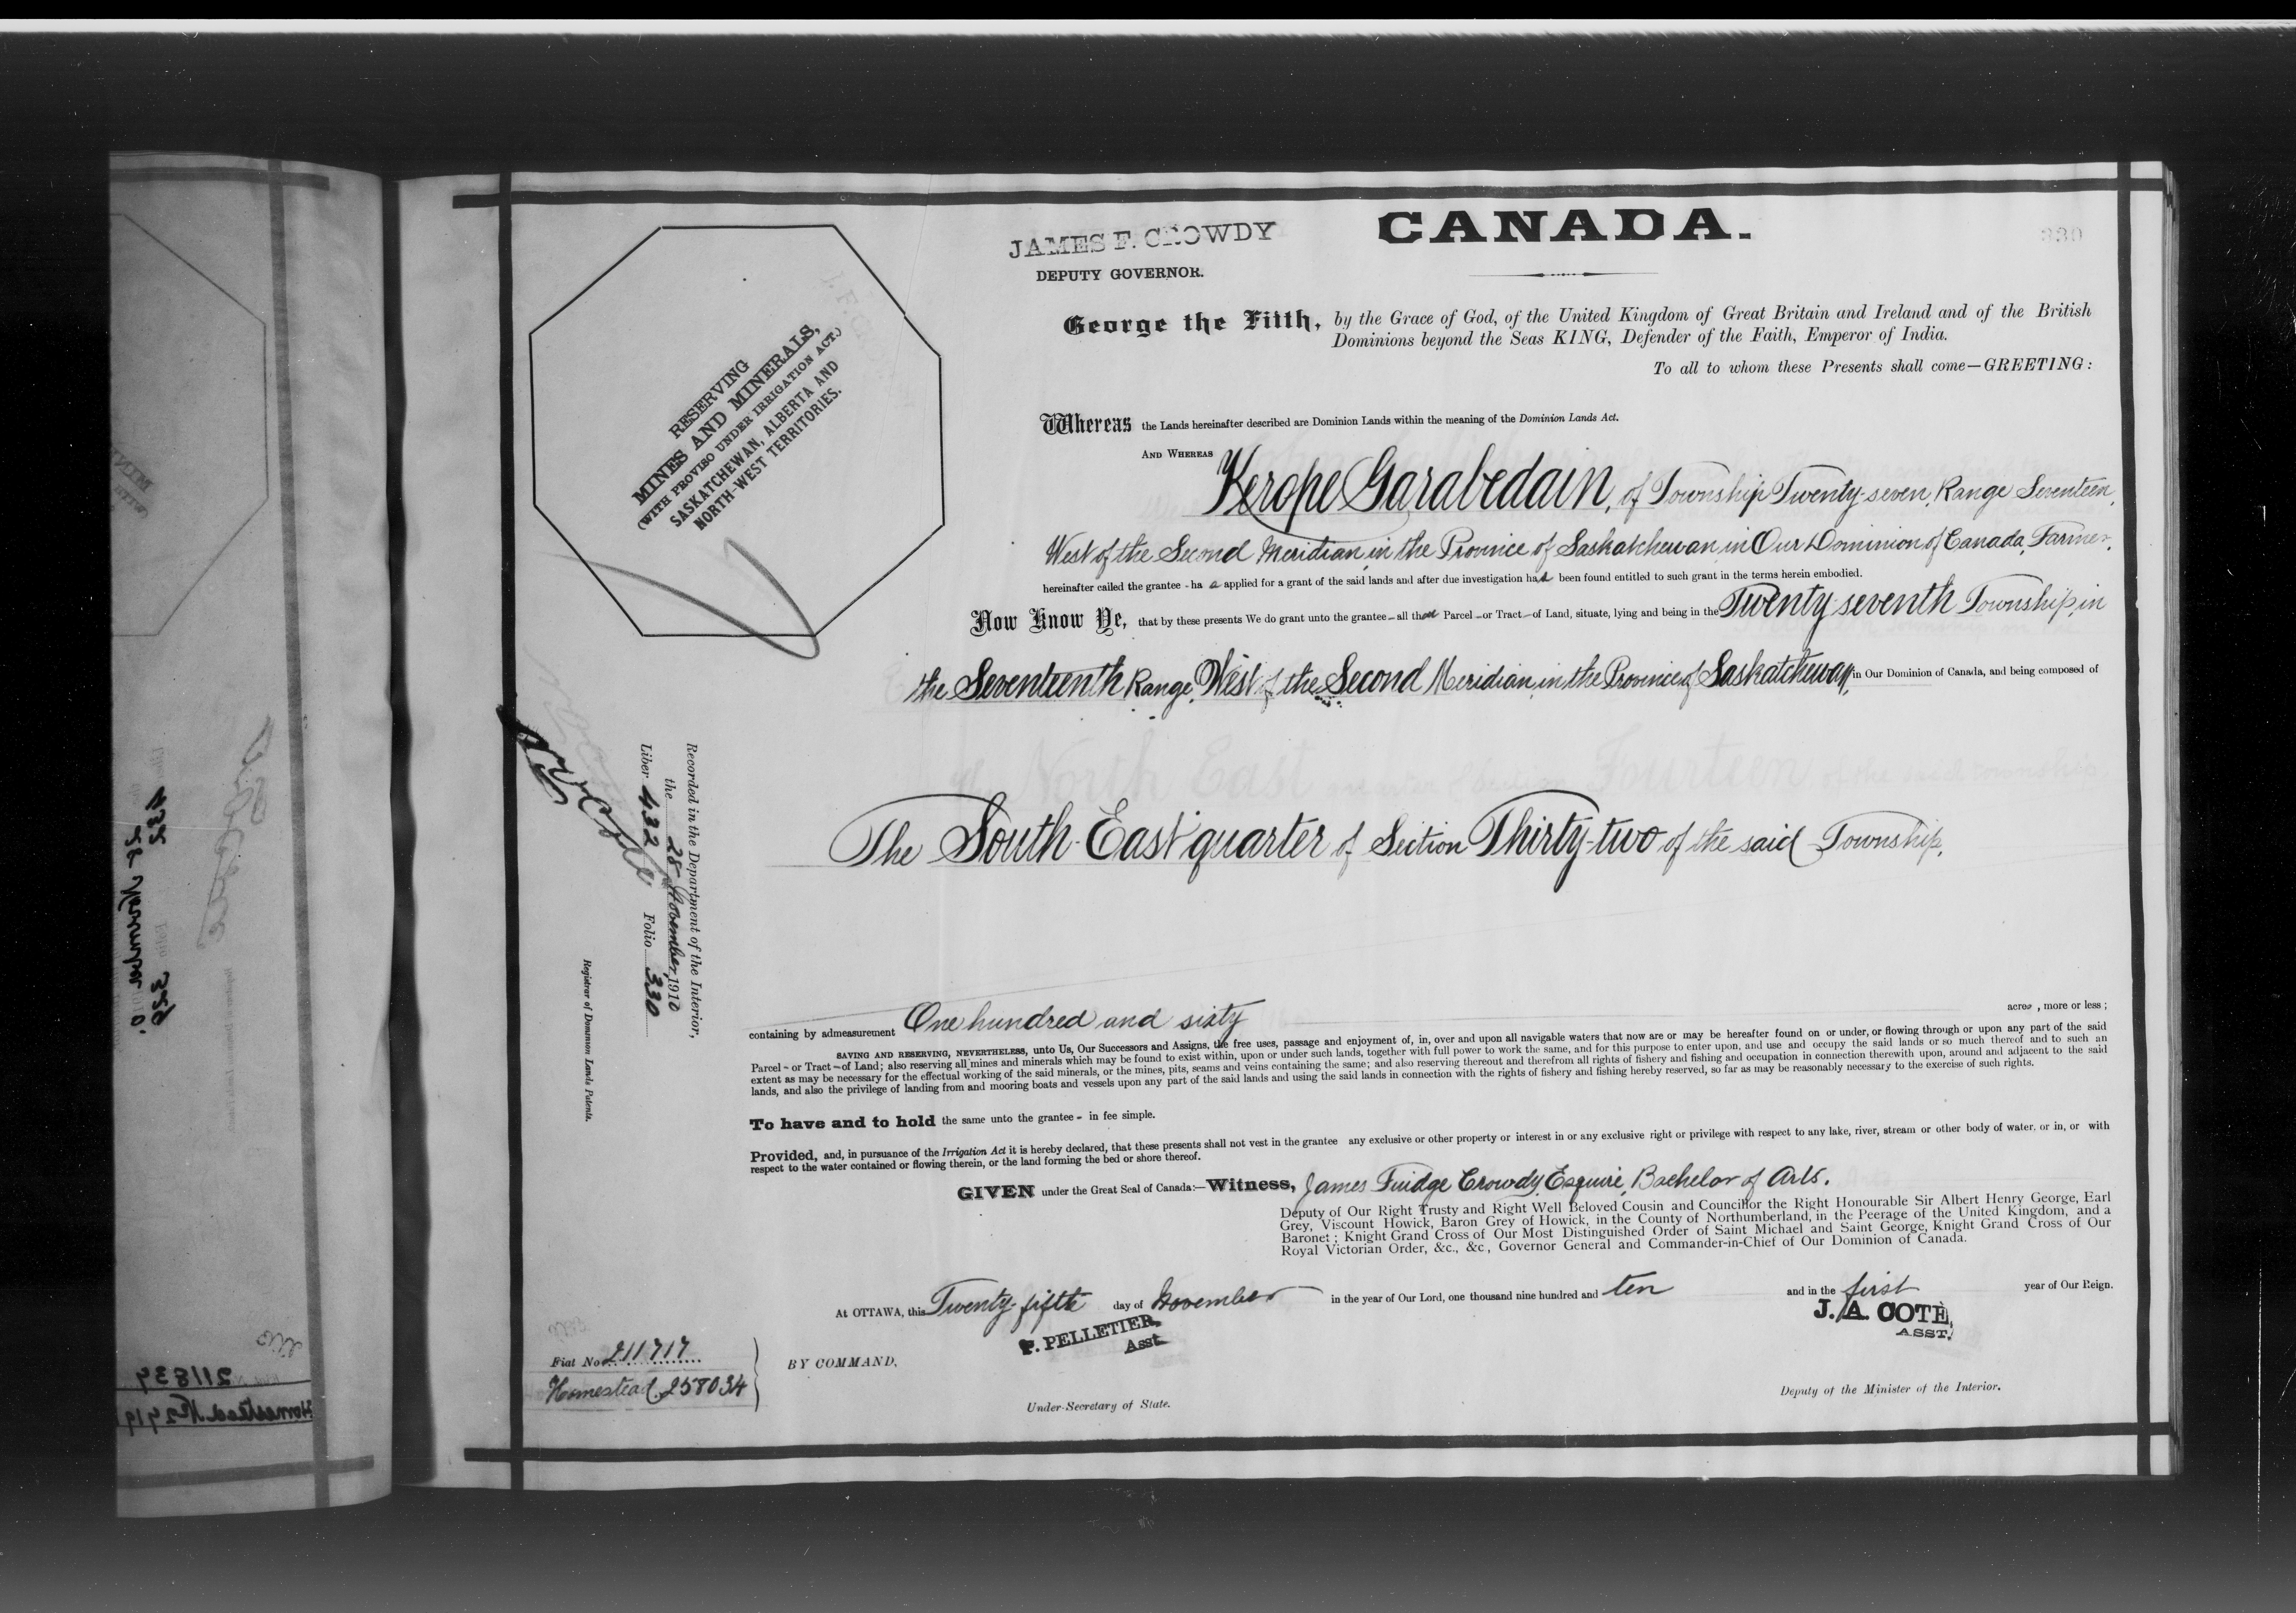 JAMES F. CROWDY
DEPUTY GOVERNOR.
CANADA.
330
George the Fifth, by the Grace of God, of the United Kingdom of Great Britain and Ireland and of the British
Dominions beyond the Seas KING, Defender of the Faith, Emperor of India.
To all to whom these Presents shall come—GREETING:
RESERVING
MINES AND MINERALS,
(WITH PROVISO UNDER IRRIGATION ACT.)
SASKATCHEWAN, ALBERTA AND
NORTH-WEST TERRITORIES.
Whereas the Lands hereinafter described are Dominion Lands within the meaning of the Dominion Lands Act.
AND WHEREAS Kerope Garabedain, of Township Twenty-seven, Range Seventeen,
West of the Second Meridian, in the Province of Saskatchewan in Our Dominion of Canada, Farmer,
hereinafter called the grantee - ha s applied for a grant of the said lands and after due investigation has been found entitled to such grant in the terms herein embodied.
Now Know Ye, that by these presents We do grant unto the grantee - all that Parcel - or Tract - of Land, situate, lying and being in the Twenty-seventh Township, in
the Seventeenth Range, West of the Second Meridian, in the Province of Saskatchewan, in Our Dominion of Canada, and being composed of
The South-East quarter of Section Thirty-two of the said Township,
Recorded in the Department of the Interior,
the 28 November, 1910
Liber 432 Folio 330
Registrar of Dominion Lands Patents.
containing by admeasurement One hundred and sixty acres, more or less;
SAVING AND RESERVING, NEVERTHELESS, unto Us, Our Successors and Assigns, the free uses, passage and enjoyment of, in, over and upon all navigable waters that now are or may be hereafter found on or under, or flowing through or upon any part of the said
Parcel - or Tract - of Land; also reserving all mines and minerals which may be found to exist within, upon or under such lands, together with full power to work the same, and for this purpose to enter upon, and use and occupy the said lands or so much thereof and to such an
extent as may be necessary for the effectual working of the said minerals, or the mines, pits, seams and veins containing the same; and also reserving thereout and therefrom all rights of fishery and fishing and occupation in connection therewith upon, around and adjacent to the said
lands, and also the privilege of landing from and mooring boats and vessels upon any part of the said lands and using the said lands in connection with the rights of fishery and fishing hereby reserved, so far as may be reasonably necessary to the exercise of such rights.
To have and to hold the same unto the grantee - in fee simple.
Provided, and, in pursuance of the Irrigation Act it is hereby declared, that these presents shall not vest in the grantee any exclusive or other property or interest in or any exclusive right or privilege with respect to any lake, river, stream or other body of water, or in, or with
respect to the water contained or flowing therein, or the land forming the bed or shore thereof.
GIVEN under the Great Seal of Canada:—Witness, James Fuidge Crowdy, Esquire, Bachelor of Arts.
Deputy of Our Right Trusty and Right Well Beloved Cousin and Councillor the Right Honourable Sir Albert Henry George, Earl
Grey, Viscount Howick, Baron Grey of Howick, in the County of Northumberland, in the Peerage of the United Kingdom, and a
Baronet; Knight Grand Cross of Our Most Distinguished Order of Saint Michael and Saint George, Knight Grand Cross of Our
Royal Victorian Order, &c., &c., Governor General and Commander-in-Chief of Our Dominion of Canada.
At OTTAWA, this Twenty-fifth day of November in the year of Our Lord, one thousand nine hundred and ten and in the first year of Our Reign.
P. PELLETIER,
Asst.
J. A. COTE,
ASST.
Fiat No. 211717
Homestead. 258034
BY COMMAND,
Under-Secretary of State.
Deputy of the Minister of the Interior.